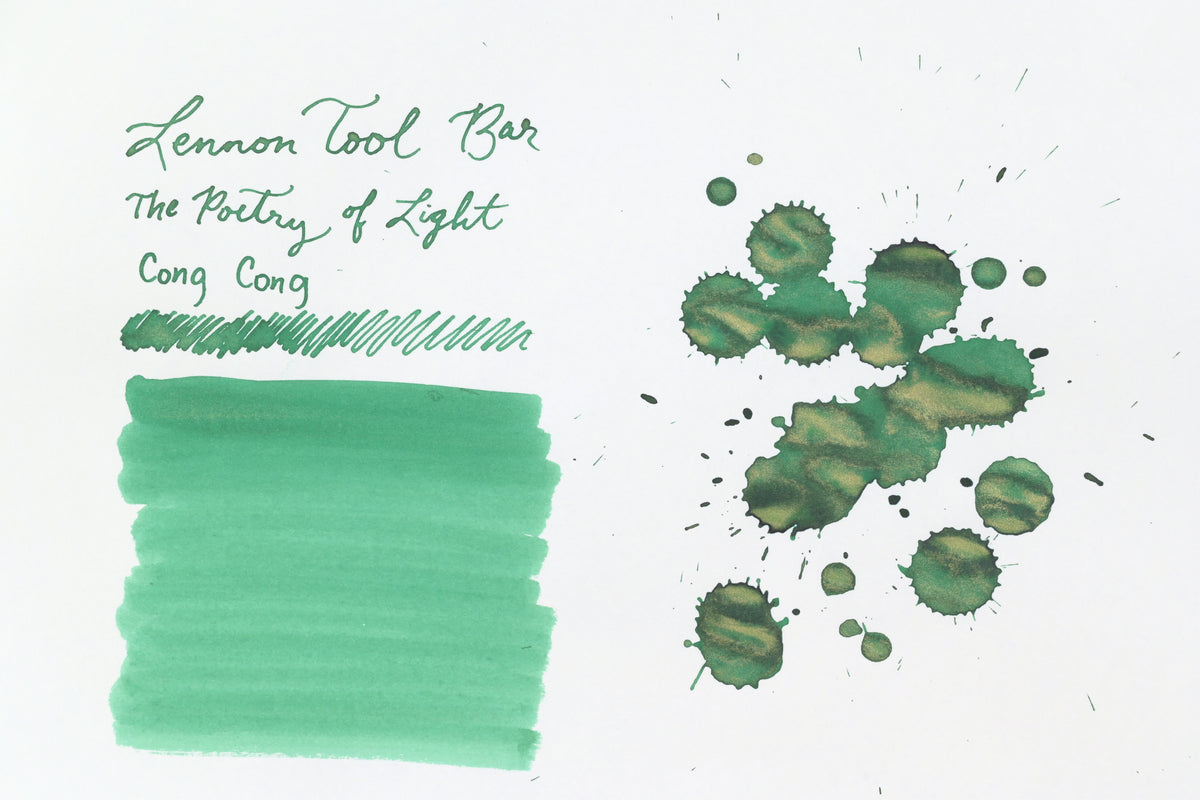 Lennon Tool Bar
The Poetry of Light
Cong Cong